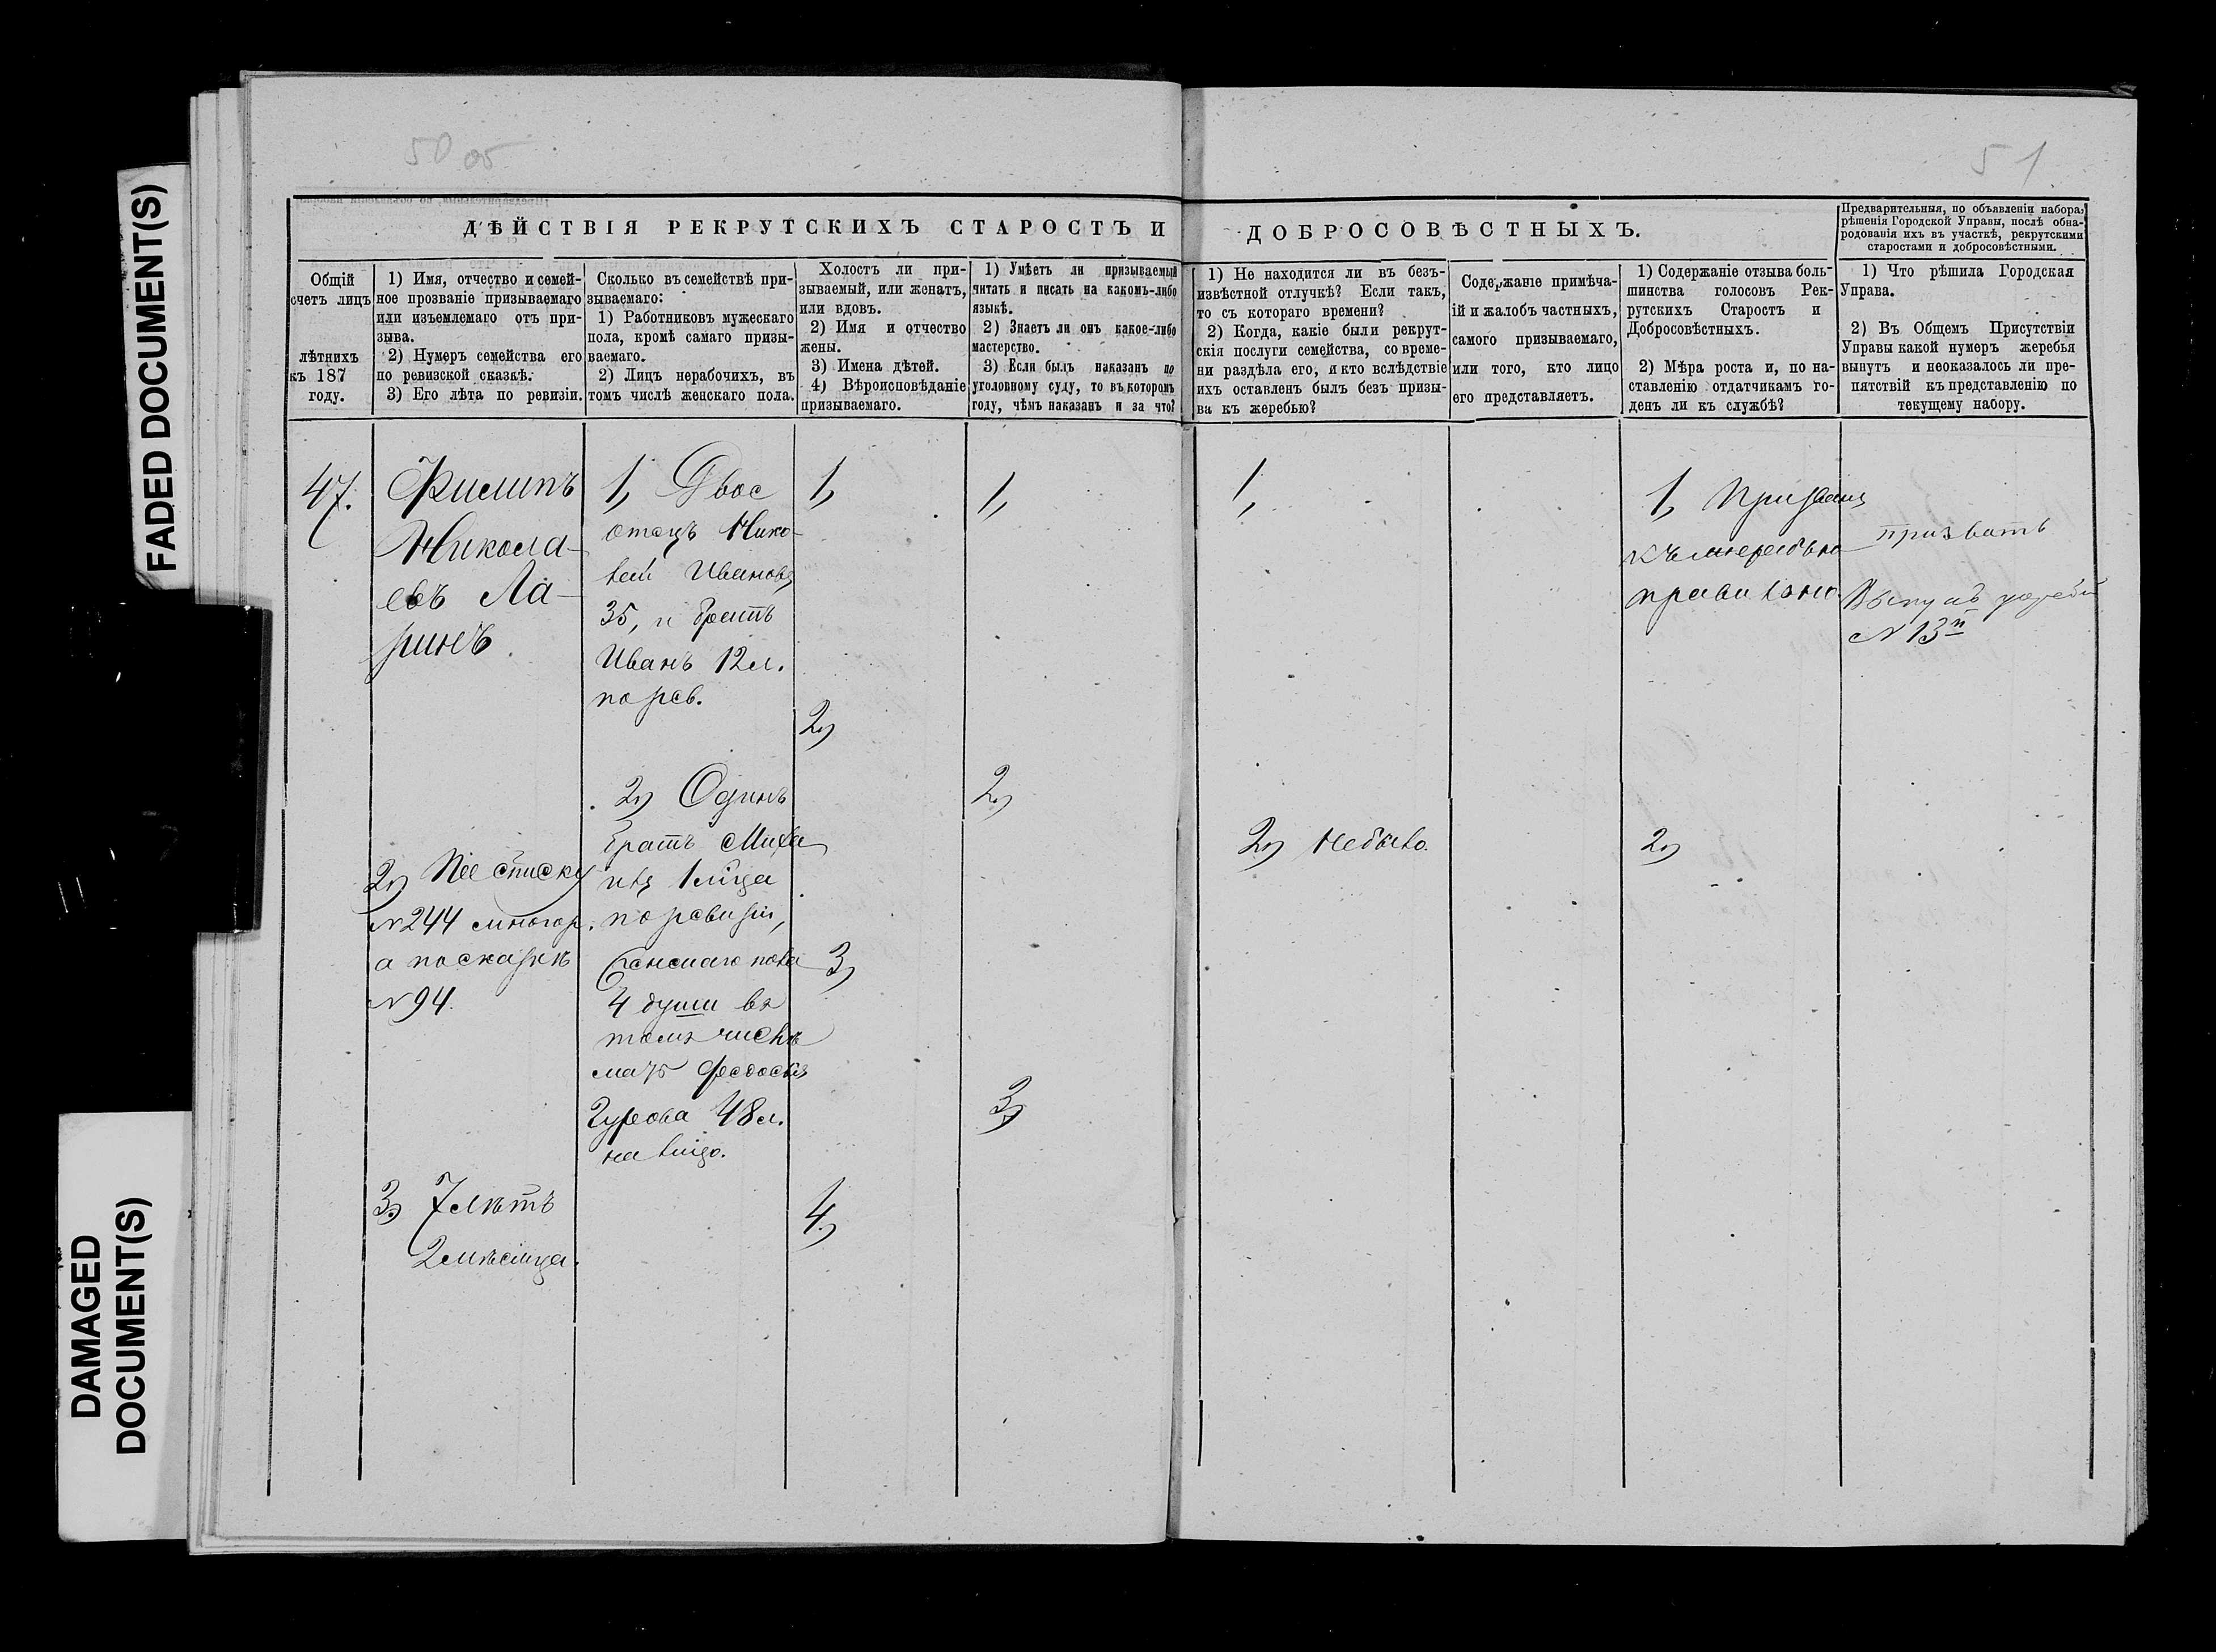 FADED DOCUMENT(S)
DAMAGED
DOCUMENT(S)
50 об
51
ДѢЙСТВІЯ РЕКРУТСКИХЪ СТАРОСТЪ И
ДОБРОСОВѢСТНЫХЪ.
Предварительныя, по объявленіи набора,
рѣшенія Городской Управы, послѣ обна-
родованія ихъ въ участкѣ, рекрутскими
старостами и добросовѣстными.
Общій
счетъ лицъ
лѣтнихъ
къ 187
году.
1) Имя, отчество и семей-
ное прозваніе призываемаго
или изъемлемаго отъ при-
зыва.
2) Нумеръ семейства его
по ревизской сказкѣ.
3) Его лѣта по ревизіи.
Сколько въ семействѣ при-
зываемаго:
1) Работниковъ мужескаго
пола, кромѣ самаго призы-
ваемаго.
2) Лицъ нерабочихъ, въ
томъ числѣ женскаго пола.
Холостъ ли при-
зываемый, или женатъ,
или вдовъ.
2) Имя и отчество
жены.
3) Имена дѣтей.
4) Вѣроисповѣданіе
призываемаго.
1) Умѣетъ ли призываемый
читать и писать на какомъ-либо
языкѣ.
2) Знаетъ ли онъ какое-либо
мастерство.
3) Если былъ наказанъ по
уголовному суду, то въ которомъ
году, чѣмъ наказанъ и за что?
1) Не находится ли въ безъ-
извѣстной отлучкѣ? Если такъ,
то съ котораго времени?
2) Когда, какіе были рекрут-
скія послуги семейства, со време-
ни раздѣла его, и кто вслѣдствіе
ихъ оставленъ былъ безъ призы-
ва къ жеребью?
Содержаніе примѣча-
ій и жалобъ частныхъ,
самого призываемаго,
или того, кто лицо
его представляетъ.
1) Содержаніе отзыва боль-
шинства голосовъ Рек-
рутскихъ Старостъ и
Добросовѣстныхъ.
2) Мѣра роста и, по на-
ставленію отдатчикамъ го-
денъ ли къ службѣ?
1) Что рѣшила Городская
Управа.
2) Въ Общемъ Присутствіи
Управы какой нумеръ жеребья
вынутъ и неоказалось ли пре-
пятствій къ представленію по
текущему набору.
47.
Филипъ
Никола-
евъ Ла-
ринъ
2) По списку
№ 244 многор.
а по сказкѣ
№ 94.
3) 7 лѣтъ
2 мѣсяца.
1, Двое
отецъ Нико-
лай Ивановъ
35, и братъ
Иванъ 12 л.
по рев.
2) Одинъ
братъ Миха
илъ 1 мѣс҃ца
по ревизіи,
женскаго пола
4 души въ
томъ числѣ
мать Феодосья
Гурьева 48 л.
на лицо.
1,
2)
3)
4.)
1,
2.)
3)
1,
2) Небыло.
1, Призванъ
къ жеребью
правильно.
2)
призвать
Вынулъ жребій
№ 13й